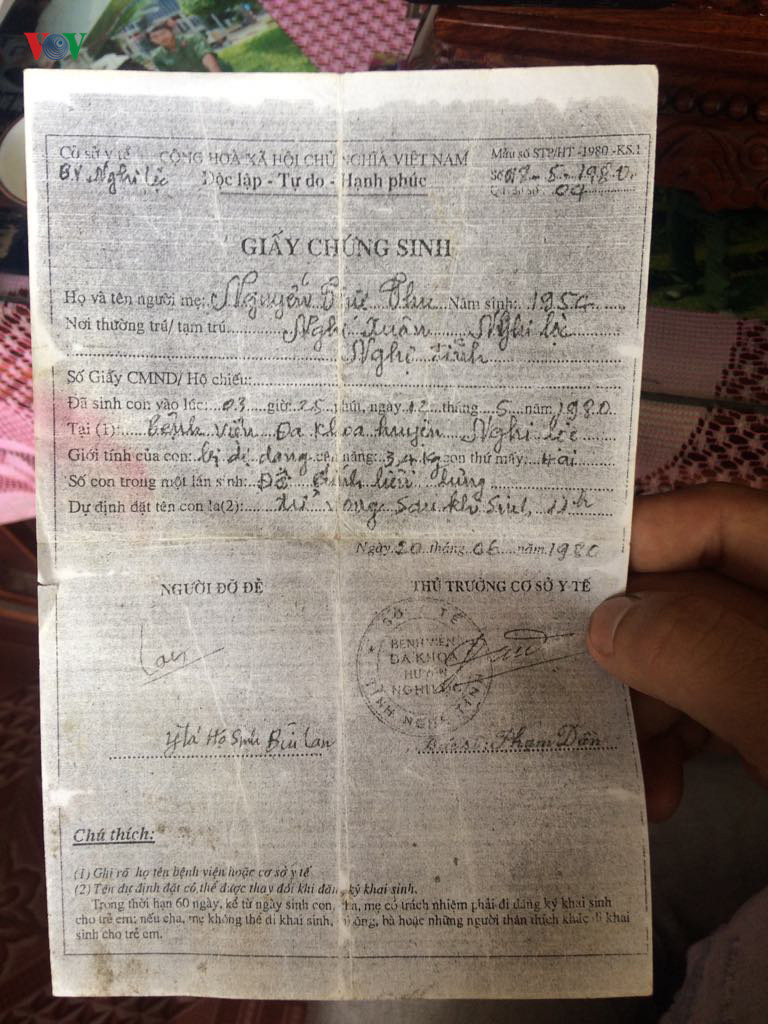 VOV
Cơ sở y tế
B.V. Nghi lộc
CỘNG HOÀ XÃ HỘI CHỦ NGHĨA VIỆT NAM
Độc lập - Tự do - Hạnh phúc
Mẫu số STP/HT -1980 -KS.1
Số 018 - 5 - 1980.
04
GIẤY CHỨNG SINH
Họ và tên người mẹ: Nguyễn Thu Năm sinh: 195
Nơi thường trú/ tạm trú Nghi Xuân Nghi lộc
Nghệ Tĩnh
Số Giấy CMND/ Hộ chiếu:
Đã sinh con vào lúc: 03 giờ: 25 phút, ngày 12 tháng 5 năm 1980
Tại (1): Bệnh viện Đa khoa huyện Nghi lộc
Giới tính của con: bị dị dạng cân nặng: 3,4 Kg con thứ mấy: Hai
Số con trong một lần sinh: Đẻ
Dự định đặt tên con là(2): tử vong sau khi sinh,
Ngày 20 tháng 06 năm 1980
NGƯỜI ĐỠ ĐẺ
THỦ TRƯỞNG CƠ SỞ Y TẾ
SỞ Y TẾ
BỆNH VIỆN
ĐA KHOA
HUYỆN
NGHI LỘC
TỈNH NGHỆ TĨNH
Y tá Hộ Sinh Bùi Lan
Bác sĩ: Phạm Dần
Chú thích:
(1) Ghi rõ họ tên bệnh viện hoặc cơ sở y tế
(2) Tên dự định đặt có thể được thay đổi khi đăng ký khai sinh.
Trong thời hạn 60 ngày, kể từ ngày sinh con, cha, mẹ có trách nhiệm phải đi đăng ký khai sinh
cho trẻ em; nếu cha, mẹ không thể đi khai sinh, ông, bà hoặc những người thân thích khác đi khai
sinh cho trẻ em.